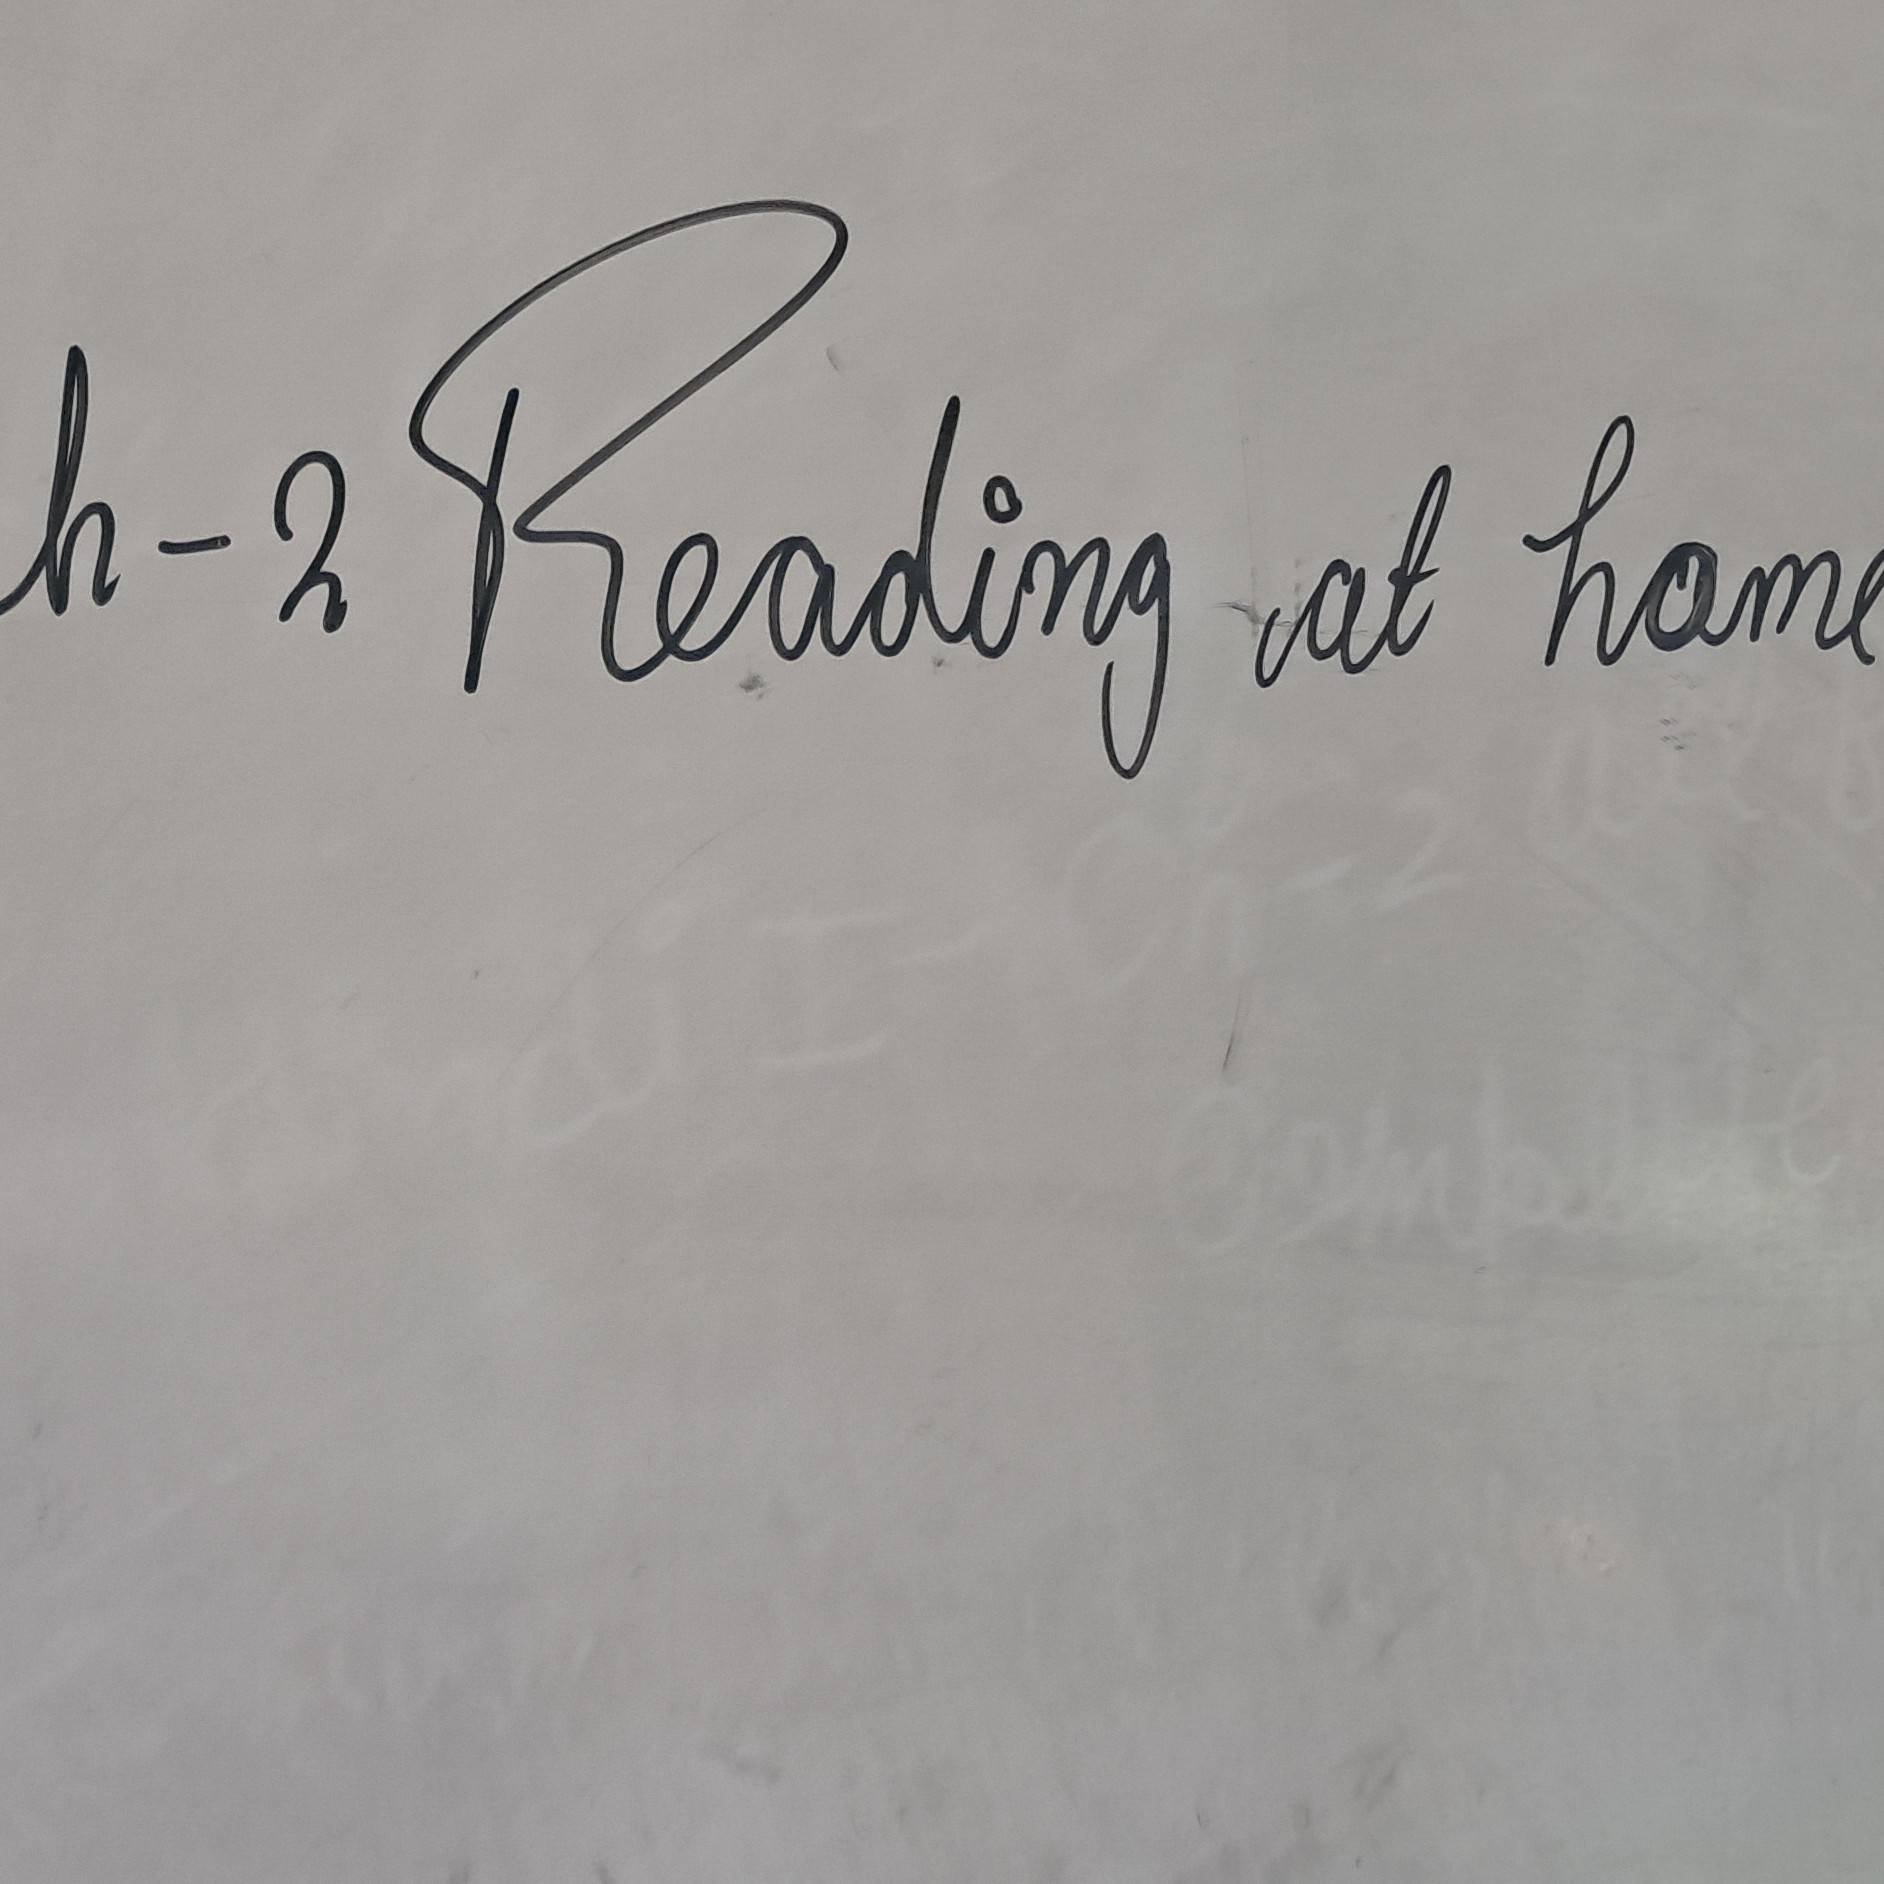 h-2 Reading at home